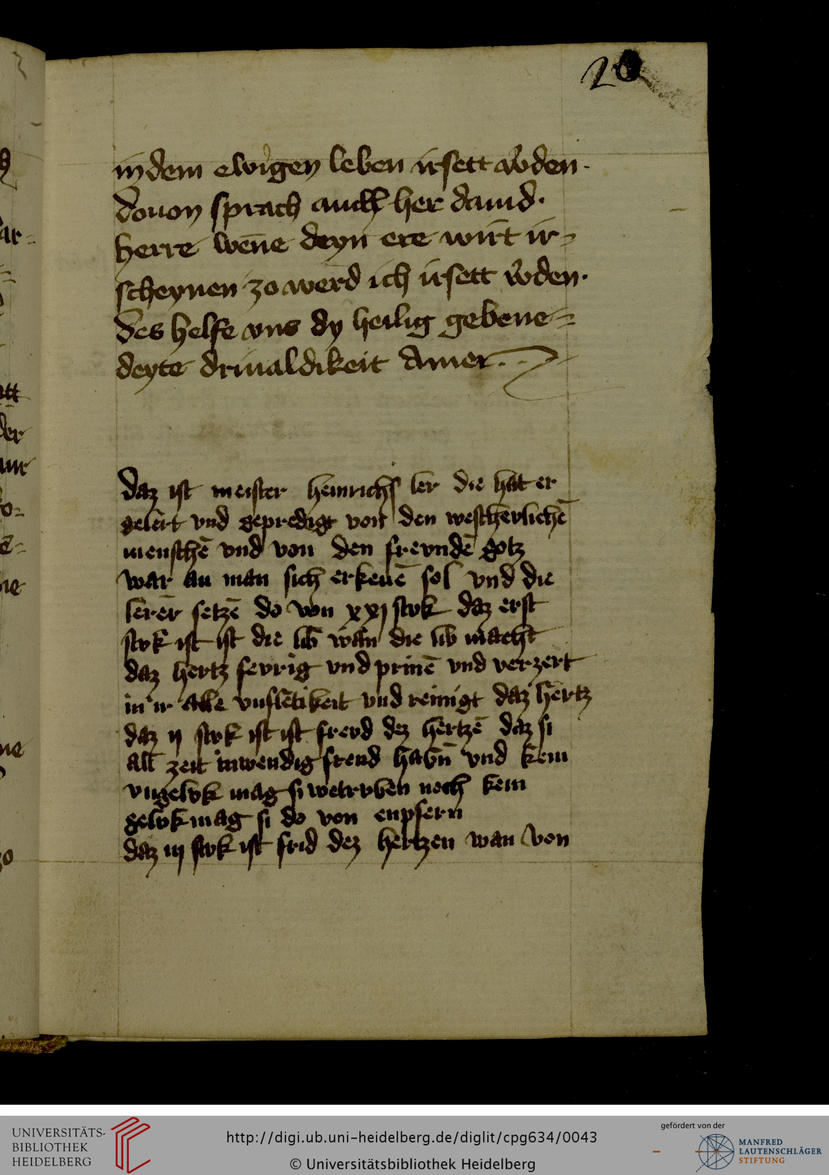 20
in dem ewigen leben irsett w̃den.
dovon sprach auch her david.
herre wen̄e deyn ere wirt ir=
scheynen zo werd ich irsett w̃den.
des helfe vns dy heilig gebene=
deyte drivaldikeit Amen.
daz ist meister heinrichs ler die hat er
gelert vnd gepredigt von den
menschē vnd von den frevndē gotz
war an man sich erkenē sol vnd die
lerer setzē do von xxj stvk daz erst
stvk ist ist die lib wan die lib macht
daz hertz fevrig vnd prinē vnd verzert
in ir alle vnfletikeit vnd reinigt daz hertz
daz ij stvk ist ist frevd dez hertzē daz si
all zeit inwendig frevd habn̄ vnd kein
vngelvk mag si wetrvben noch kein
gelvk mag si do von
daz iij stvk ist frid dez hertzen wan von
UNIVERSITÄTS-
BIBLIOTHEK
HEIDELBERG
http://digi.ub.uni-heidelberg.de/diglit/cpg634/0043
© Universitätsbibliothek Heidelberg
gefördert von der
MANFRED
LAUTENSCHLÄGER
STIFTUNG